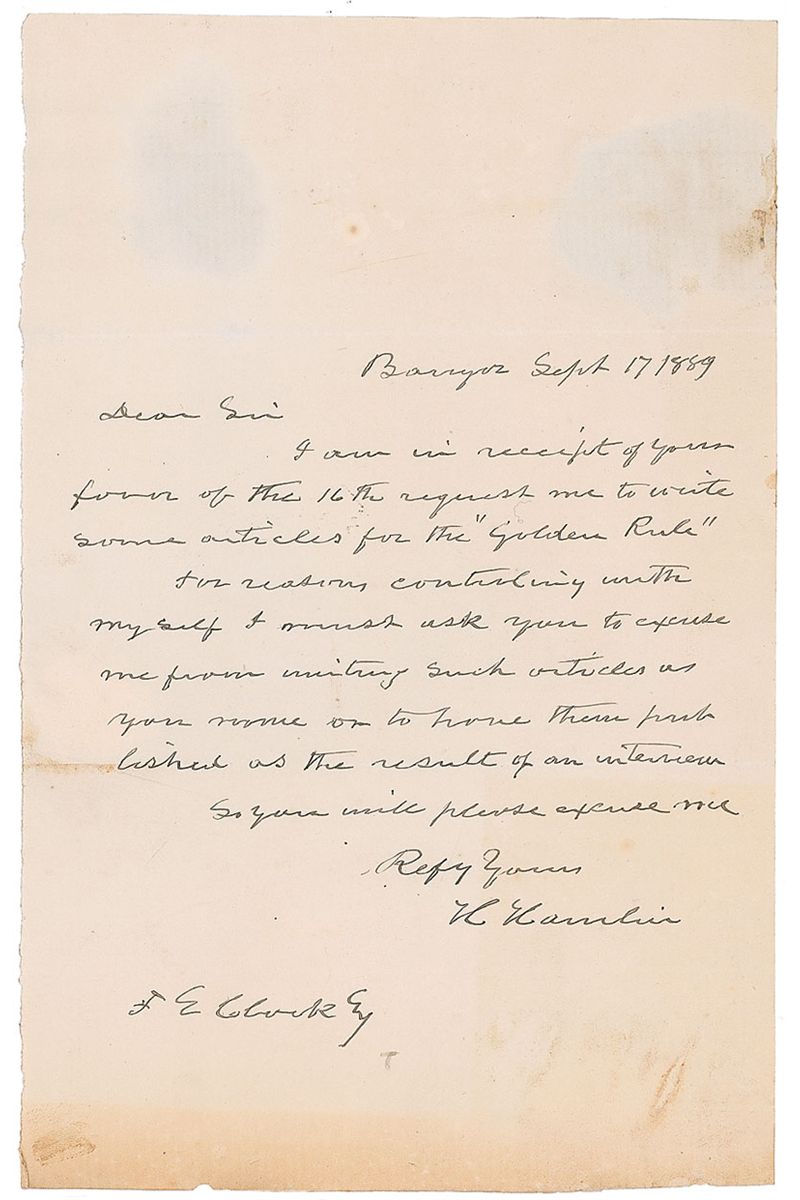 Bangor Sept 17 1889
Dear Sir
I am in receipt of yours
favor of the 16th request me to write
some articles for the "Golden Rule"
For reasons controling with
myself I must ask you to excuse
me from writing such articles as
you name or to have them pub
lished as the result of an interview
So you will please excuse me
Resy Yours
H Hamlin
F E Clark Esq